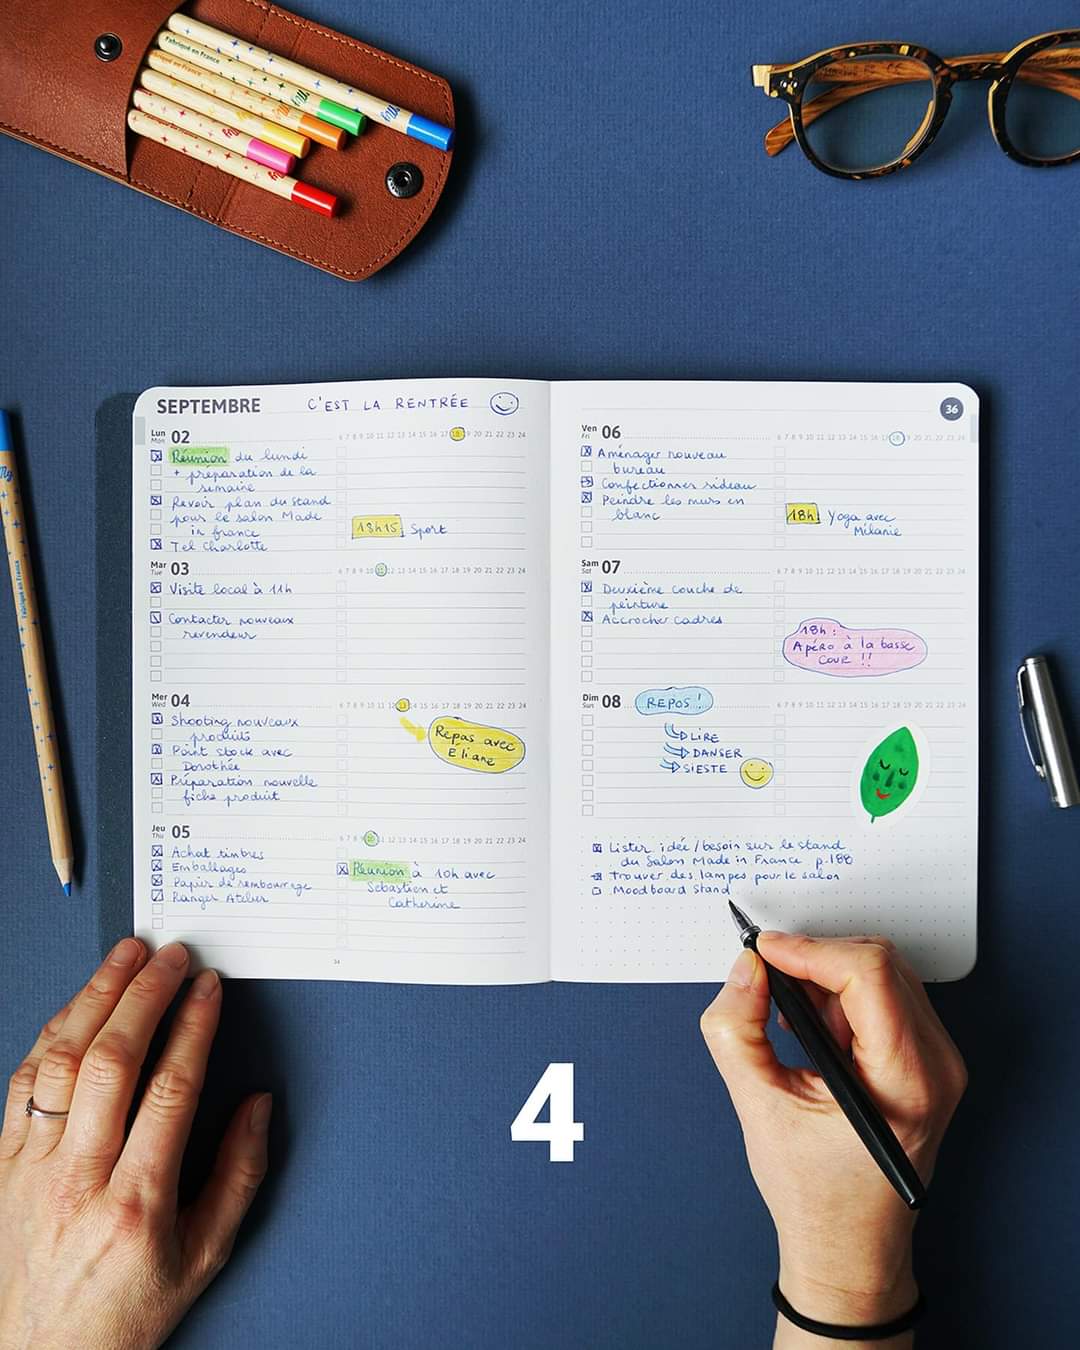 Fabriqué en France
Fabriqué en France
SEPTEMBRE C'EST LA RENTRÉE
Lun
Mon
02
6 7 8 9 10 11 12 13 14 15 16 17 18 19 20 21 22 23 24
Réunion du lundi
+ préparation de la
semaine
Revoir plan du stand
pour le salon Made
in france
Tel Charlotte
18h15 Sport
Mar
Tue
03
6 7 8 9 10 11 12 13 14 15 16 17 18 19 20 21 22 23 24
Visite local à 11h
Contacter nouveaux
revendeur
Mer
Wed
04
6 7 8 9 10 11 12 13 14 15 16 17 18 19 20 21 22 23 24
Shooting nouveaux
produits
Point stock avec
Dorothée
Préparation nouvelle
fiche produit
Repas avec
Éliane
Jeu
Thu
05
6 7 8 9 10 11 12 13 14 15 16 17 18 19 20 21 22 23 24
Achat timbres
Emballages
Papier de rembourrage
Ranger Atelier
Réunion à 10h avec
Sébastien et
Catherine
34
36
Ven
Fri
06
6 7 8 9 10 11 12 13 14 15 16 17 18 19 20 21 22 23 24
Aménager nouveau
bureau
Confectionner rideau
Peindre les murs en
blanc
18h Yoga avec
Mélanie
Sam
Sat
07
6 7 8 9 10 11 12 13 14 15 16 17 18 19 20 21 22 23 24
Deuxième couche de
peinture
Accrocher cadres
18h :
Apéro à la basse
cour !!
Dim
Sun
08
6 7 8 9 10 11 12 13 14 15 16 17 18 19 20 21 22 23 24
REPOS !
LIRE
DANSER
SIESTE
Lister idée/besoin sur le stand
du Salon Made in France p.188
Trouver des lampes pour le salon
Moodboard stand
Fabriqué en France
4